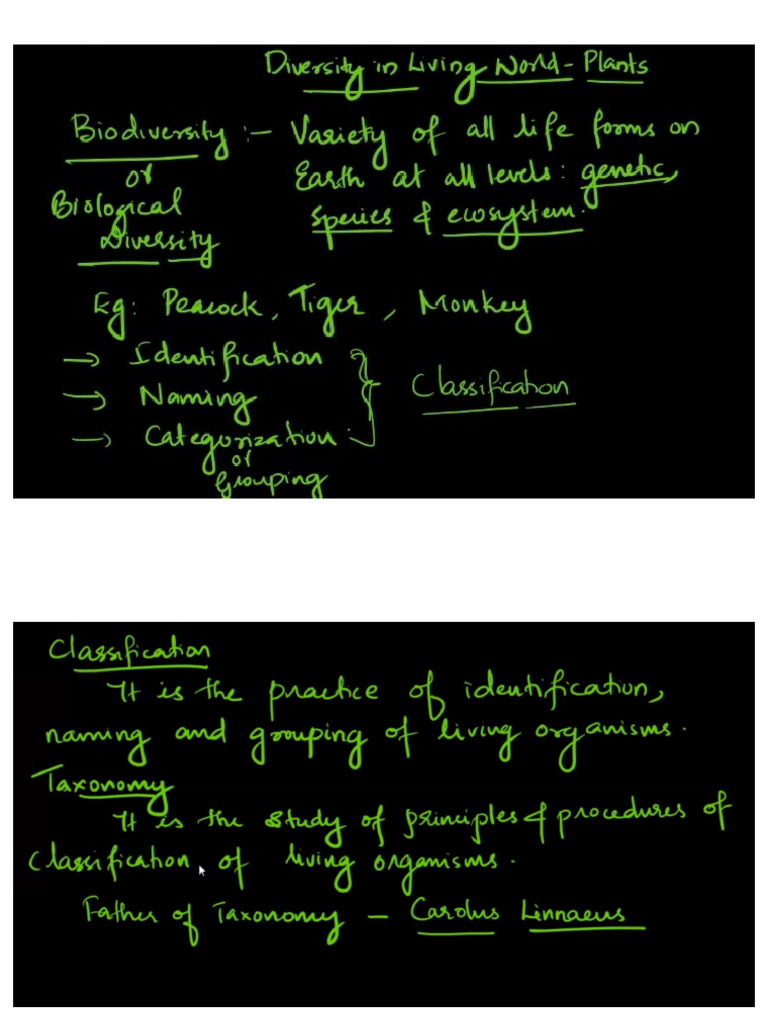 Diversity in Living World - Plants
Biodiversity :- Variety of all life forms on
or Earth at all levels: genetic,
Biological species & ecosystem.
Diversity
Eg: Peacock, Tiger, Monkey
→ Identification
→ Naming } Classification
→ Categorization
or
Grouping
Classification
It is the practice of identification,
naming and grouping of living organisms.
Taxonomy
It is the study of principles & procedures of
classification of living organisms.
Father of Taxonomy - Carolus Linnaeus